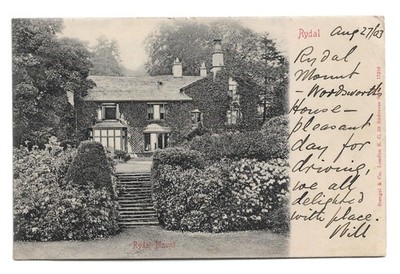 Rydal
Aug 27/03
Rydal
Mount
- Wordsworth
House -
pleasant
day for
driving,
we all
delighted
with place.
Will
Rydal Mount
Stengel & Co., London E. C.